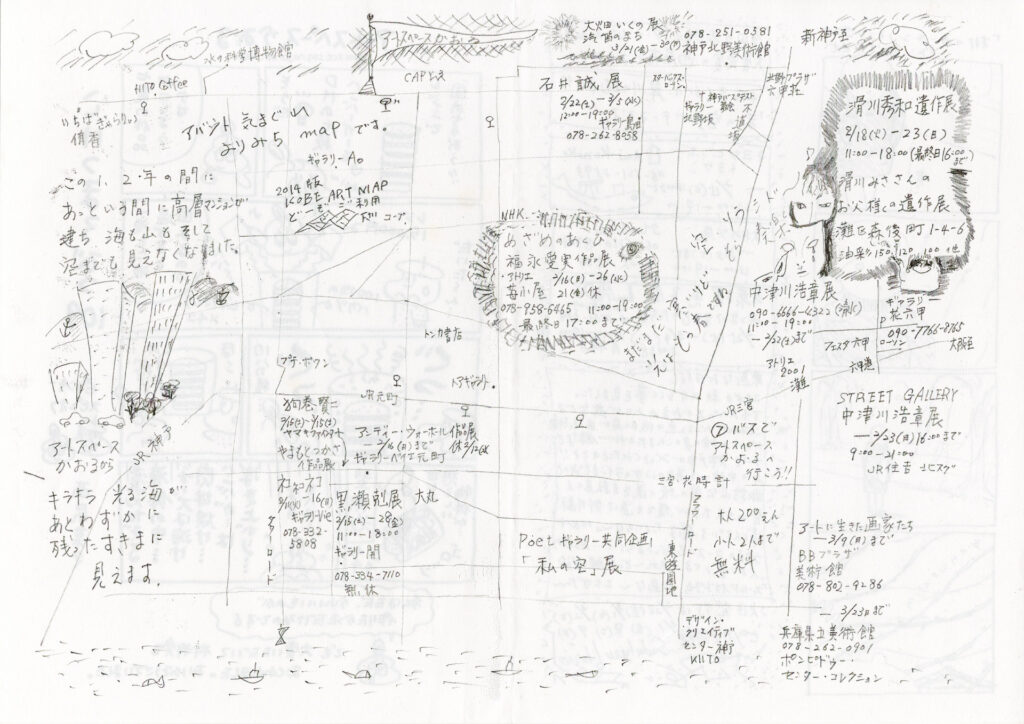 アートスペースかおる
水の科学博物館
HITO Coffee
CAP
大畑いくの展
3/21(金)-30(日)
078-251-0381
神戸北野美術館
新神戸
アバウト 気まぐれ
よりみち map です。
石井誠展
2/22(土)-3/5(水)
12:00-19:00
ギャラリー島田
078-262-8058
北野坂
不動坂
滑川秀和遺作展
2/18(火)-23(日)
11:00-18:00(最終日16:00まで)
滑川みささんの
お父様の遺作展
灘区森後町1-4-6
油彩150, 120, 100 他
ギャラリーAo
2014版
KOBE ART MAP
どーぞ ご利用
この1、2年の間に
あっという間に高層マンションが
建ち 海も山も そして
空までも見えなくなりました。
NHK
めざめのあくび
福永愛実作品展
アトリエ 2/16(日)-26(水)
苺小屋 21(金)休
078-958-6465 11:00-19:00
最終日17:00まで
中津川浩章展
11:00-19:00
-2/22(土)まで
アトリエ
2001
灘
ギャラリー
花六甲
090-7766-8765
フェスタ六甲
六甲道
トンカ書店
プチ・ボワン
トアギャラリー
JR元町
狗巻賢二
ヤマキファインアート
やまもとつかさ
作品展
アンディー・ウォーホール作品展
-2/16(日)まで
ギャラリーベイ元町
ネコネコ
-16(日)
ギャラリーVie
078-332-5808
トアロード
黒瀬剋展
2/15(土)-28(金)
11:00-18:00
ギャラリー開
078-334-7110
無休
大丸
JR三宮
⑦バスで
アートスペース
かおるへ
行こう!!
三宮花時計
フラワーロード
東遊園地
大人200えん
小人2人まで
無料
Poetギャラリー共同企画
「私の空」展
デザイン・
クリエイティブ
センター神戸
KIITO
STREET GALLERY
中津川浩章展
-2/23(日)16:00まで
9:00-21:00
JR住吉 北スグ
アートに生きた画家たち
-3/9(日)まで
BBプラザ
美術館
078-802-9286
-3/23日まで
兵庫県立美術館
078-262-0901
ポンピドゥー・
センター・コレクション
アートスペース
かおるから
JR神戸
キラキラ 光る海が
あとわずかに
残ったすきまに
見えます。